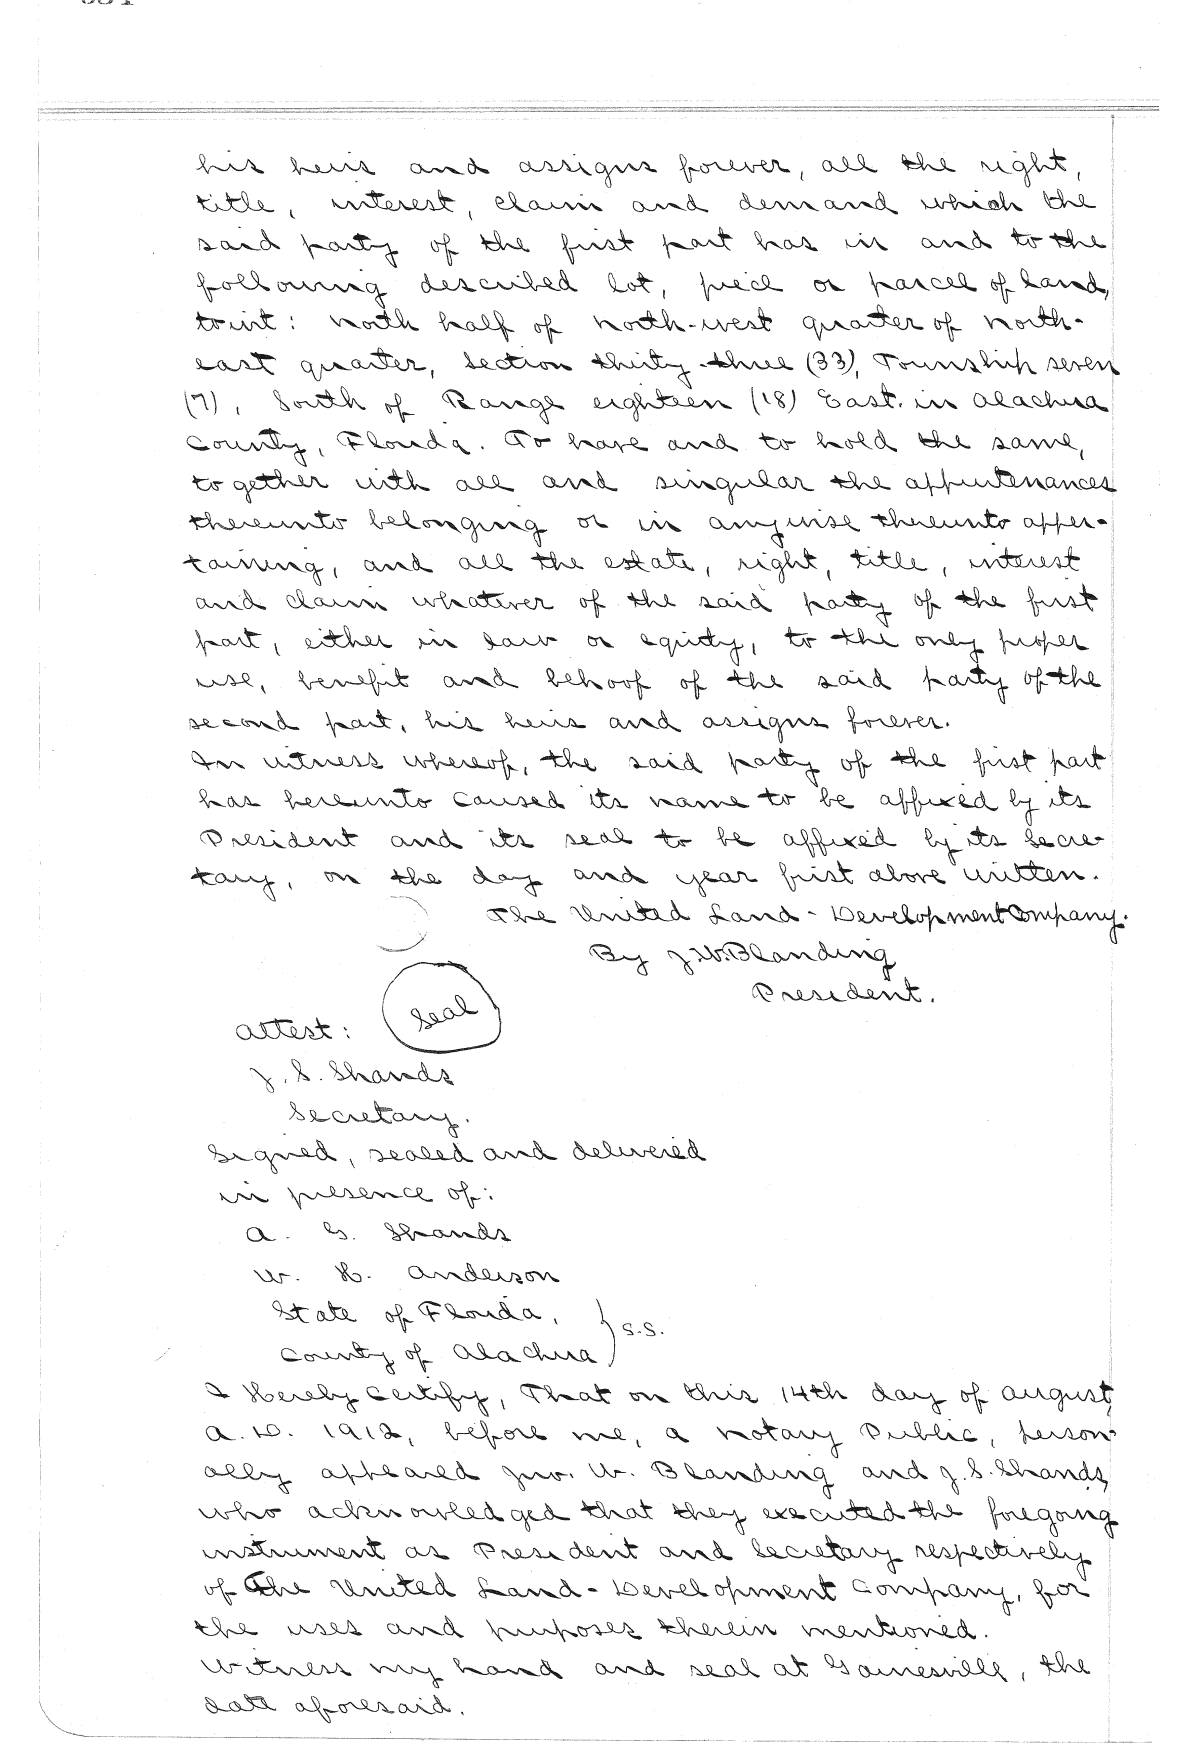 his heirs and assigns forever, all the right,
title, interest, claim and demand which the
said party of the first part has in and to the
following described lot, piece or parcel of land,
towit: North half of North-west quarter of North-
east quarter, Section thirty-three (33), Township seven
(7), South of Range eighteen (18) East. in Alachua
County, Florida. To have and to hold the same,
together with all and singular the appurtenances
thereunto belonging or in anywise thereunto apper-
taining, and all the estate, right, title, interest
and claim whatever of the said party of the first
part, either in law or equity, to the only proper
use, benefit and behoof of the said party of the
second part, his heirs and assigns forever.
In witness whereof, the said party of the first part
has hereunto caused its name to be affixed by its
President and its seal to be affixed by its Secre-
tary, on the day and year first above written.
The United Land-Development Company.
By J.W. Blanding
President.
Seal
Attest:
J. S. Shands
Secretary.
Signed, sealed and delivered
in presence of:
A. G. Shands
W. H. Anderson
State of Florida,
County of Alachua } S.S.
I Hereby Certify, That on this 14th day of August,
A.D. 1912, before me, a Notary Public, person-
ally appeared Jno. W. Blanding and J. S. Shands,
who acknowledged that they executed the foregoing
instrument as President and Secretary respectively
of The United Land-Development Company, for
the uses and purposes therein mentioned.
Witness my hand and seal at Gainesville, the
date aforesaid.